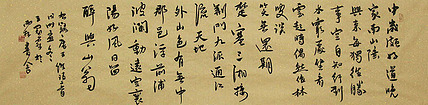 中歲頗好道晚
家南山陲
興來每獨往勝
事空自知行到
水窮處坐看
雲起時偶然值林
叟談
笑無還期
楚塞三湘接
荊門九派通江
流天地
外山色有無中
郡邑浮前浦
波瀾動遠空襄
陽好風日留
醉與山翁